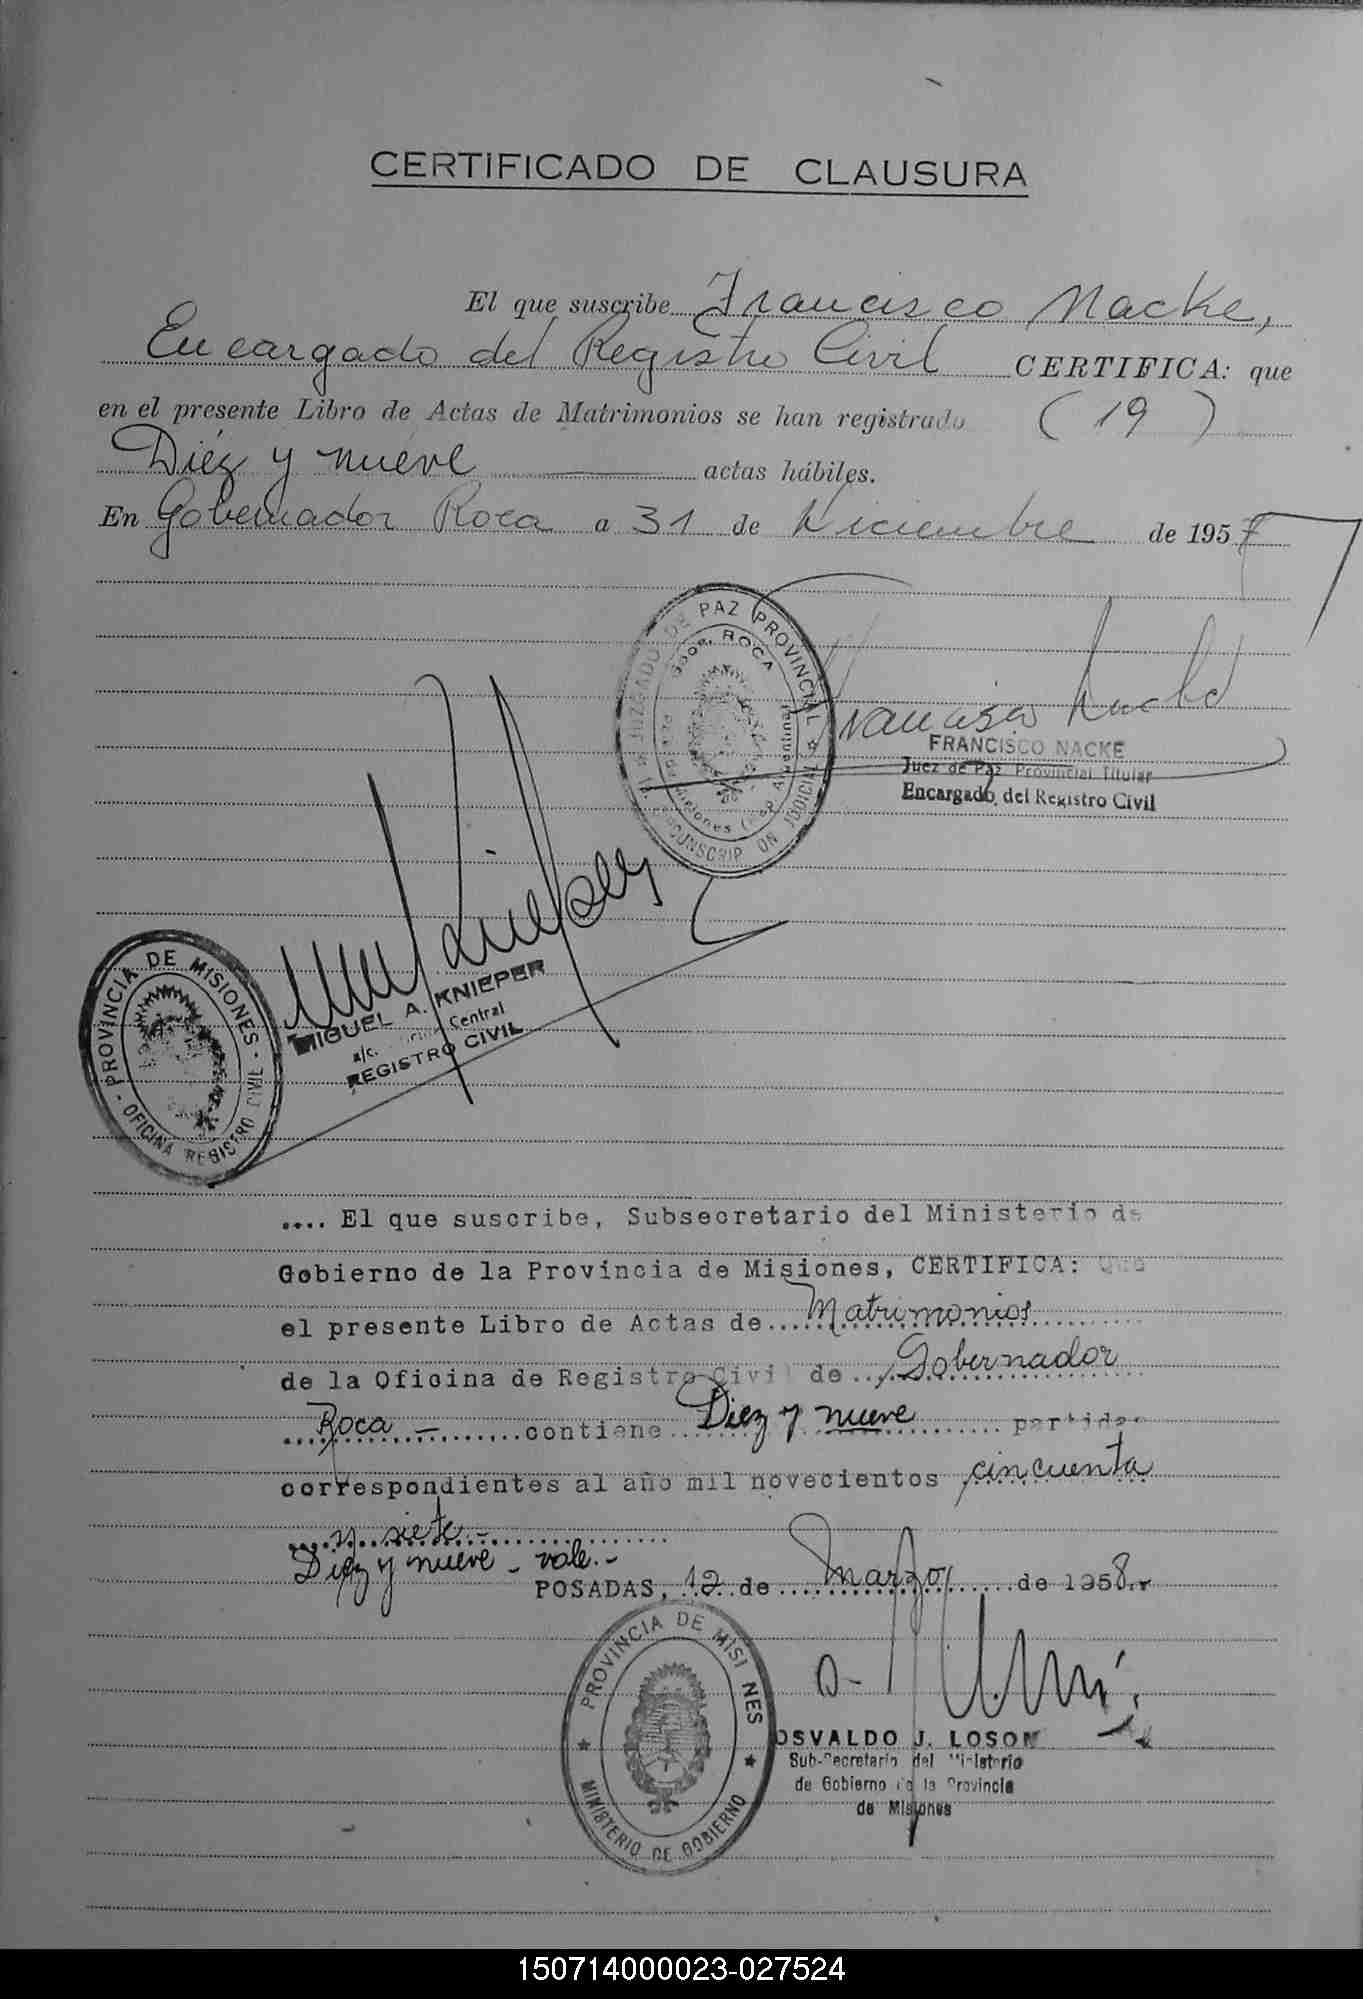 CERTIFICADO DE CLAUSURA
El que suscribe Francisco Nacke,
Encargado del Registro Civil CERTIFICA: que
en el presente Libro de Actas de Matrimonios se han registrado (19)
Diéz y nueve actas hábiles.
En Gobernador Roca a 31 de Diciembre de 1957
JUZGADO DE PAZ PROVINCIAL
Gdor. ROCA
CIRCUNSCRIPCION JUDICIAL
FRANCISCO NACKE
Juez de Paz Provincial Titular
Encargado del Registro Civil
PROVINCIA DE MISIONES
OFICINA REGISTRO CIVIL
MIGUEL A. KNIEPER
a/c. Central
REGISTRO CIVIL
.... El que suscribe, Subsecretario del Ministerio de
Gobierno de la Provincia de Misiones, CERTIFICA: Que
el presente Libro de Actas de Matrimonios
de la Oficina de Registro Civil de Gobernador
Roca - contiene Diez y nueve partidas
correspondientes al año mil novecientos cincuenta
y siete.-
Diez y nueve - vale.-
POSADAS, 12 de marzo de 1958.-
PROVINCIA DE MISIONES
MINISTERIO DE GOBIERNO
OSVALDO J. LOSON
Sub-Secretario del Ministerio
de Gobierno de la Provincia
de Misiones
150714000023-027524